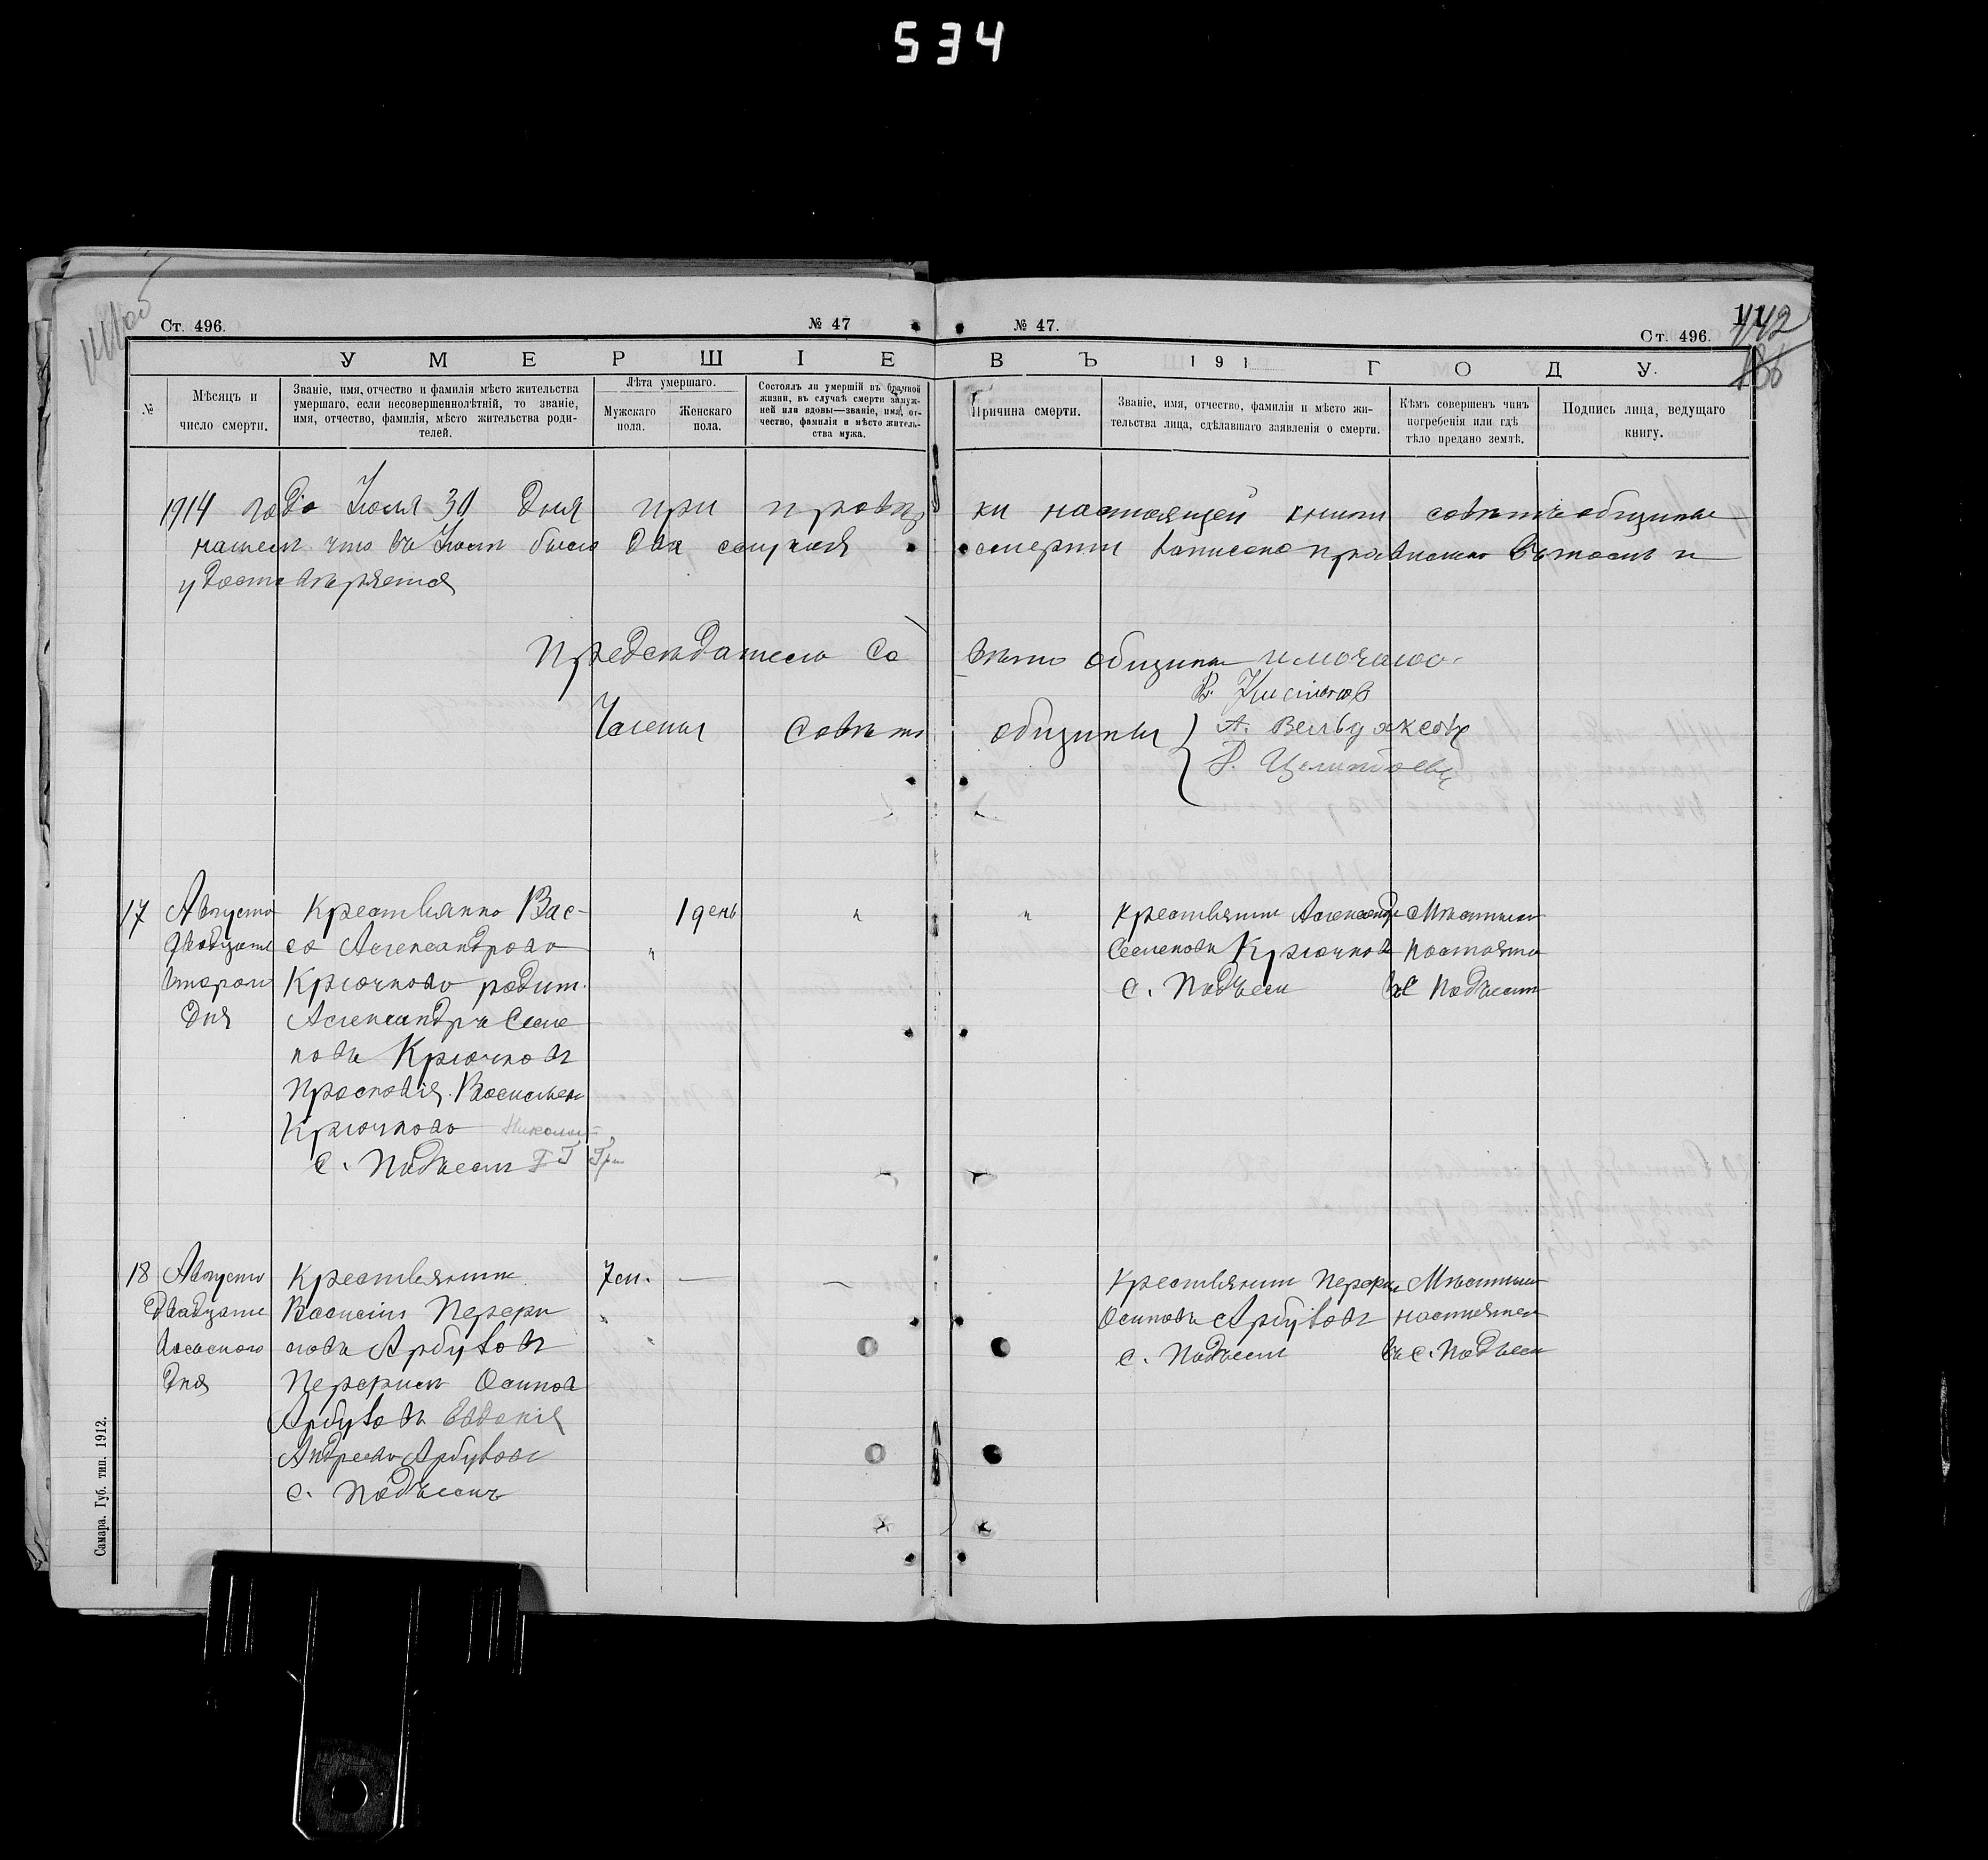 534
Ст. 496.
№ 47
№ 47.
Ст. 496.
142
186
УМЕРШІЕ ВЪ 191 ГОДУ.
№
Мѣсяцъ и число смерти.
Званіе, имя, отчество и фамилія мѣсто жительства
умершаго, если несовершеннолѣтній, то званіе,
имя, отчество, фамилія, мѣсто жительства роди-
телей.
Лѣта умершаго.
Мужскаго пола.
Женскаго пола.
Состоялъ ли умершій въ брачной
жизни, въ случаѣ смерти замуж-
ней или вдовы—званіе, имя, от-
чество, фамилія и мѣсто житель-
ства мужа.
Причина смерти.
Званіе, имя, отчество, фамилія и мѣсто жи-
тельства лица, сдѣлавшаго заявленія о смерти.
Кѣмъ совершенъ чинъ
погребенія или гдѣ
тѣло предано землѣ.
Подпись лица, ведущаго
книгу.
1914 года Июля 30 дня при провѣр ки настоящей книги совѣтъ общины
нашелъ что въ Июли было два случая смерти записано правильно въ томъ и
удостовѣряется
Председатель Со вѣта общины
Члены Совѣта общины
17
Августа
двадцать
второго
дня
Крестьянка Вас-
са Александрова
Крючкова родит.
Александръ Семе
новъ Крючковъ
Прасковія Васильев
Крючкова
с. Подъемъ
1 день
Крестьянинъ Александр
Семеновъ Крючковъ
с. Подъем
Мѣстным
настоятел
въ с Подъемъ
18
Августа
Двадцать
дня
Крестьянинъ
Василій Перфи
ловъ Арбузовъ
Перфилъ Осипов
Арбузовъ Евдокія
Андреева Арбузова
с. Подъемъ
7 м.
Крестьянинъ Перфил
Осиповъ Арбузовъ
с. Подъем
Мѣстным
настоятел
въ с. Подъем
Самара. Губ. тип. 1912.